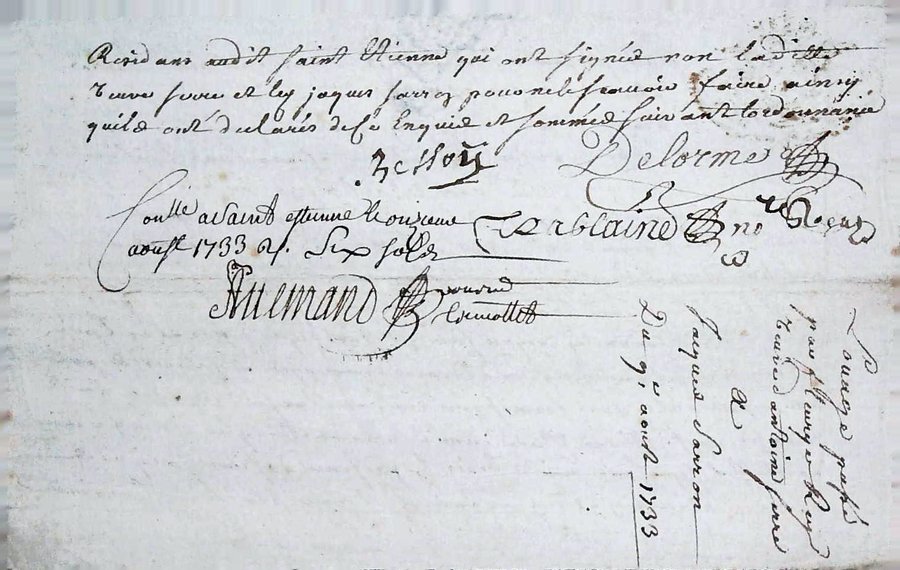 Residans audit saint Etienne qui ont signée non laditte
veuve serre et led jaques sarron pour ne le scavoir faire ainsy
quils ont declarés de ce Enquis et sommés suivant lordonnance
Delorme
Conlle a saint estienne le onzieme
aoust 1733 R. six sols
Terrblaine no re
Allemand
Louage passé
par
veuve antoine serre
A
Jacques Sarron
Du 9e aoust 1733